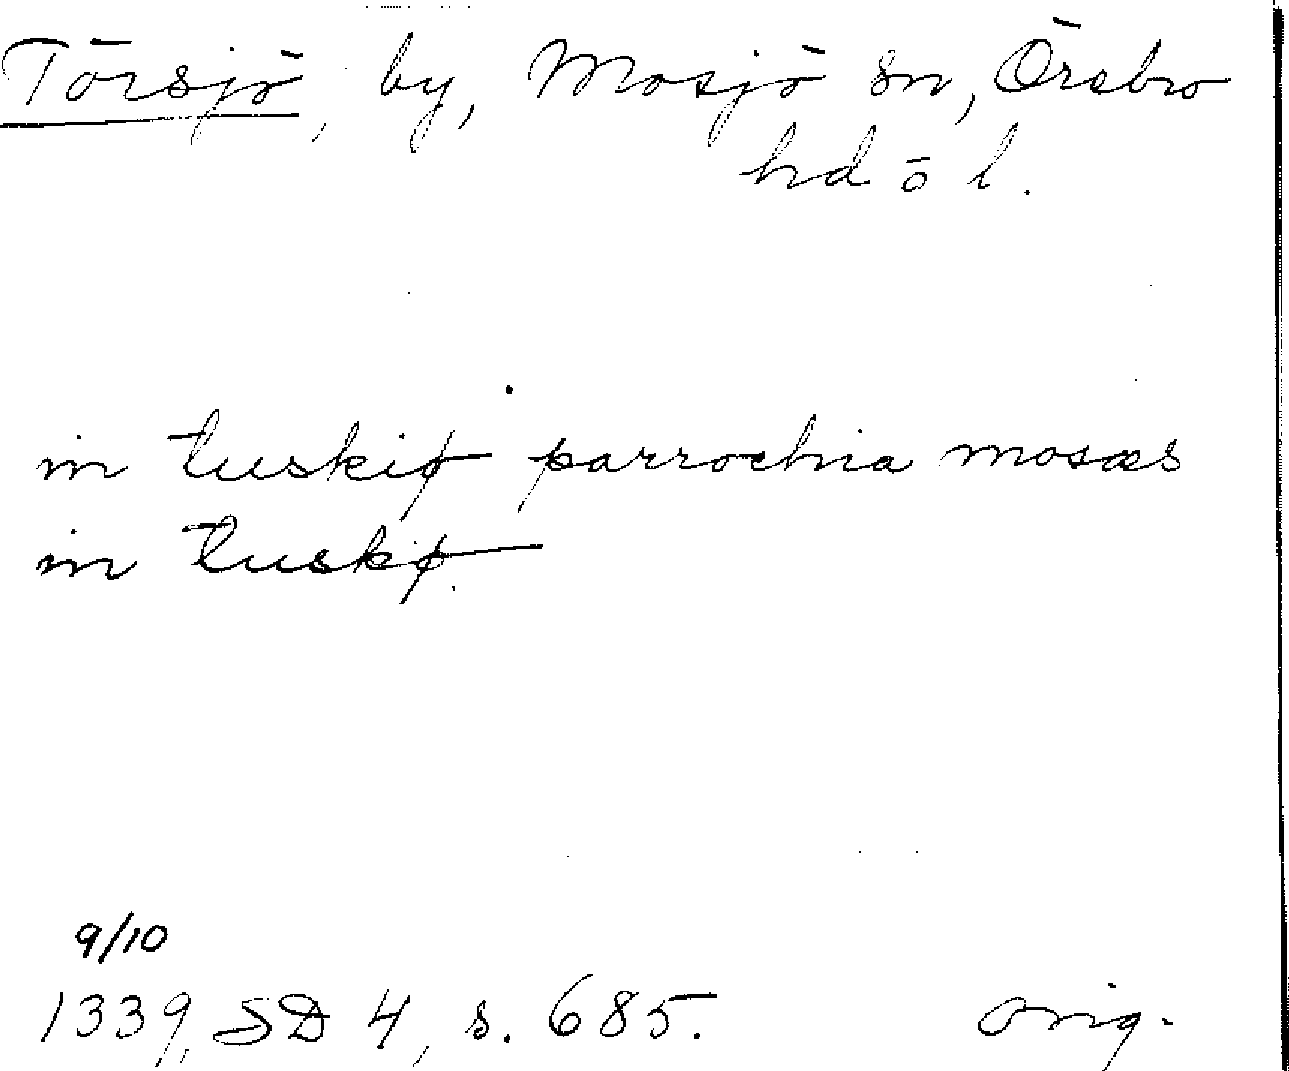 Törsjö, by, Mosjö sn, Örebro
hd ö l.
in tuskiø parrochia mosæs
in tuskø
9/10
1339, SD 4, s. 685. orig.